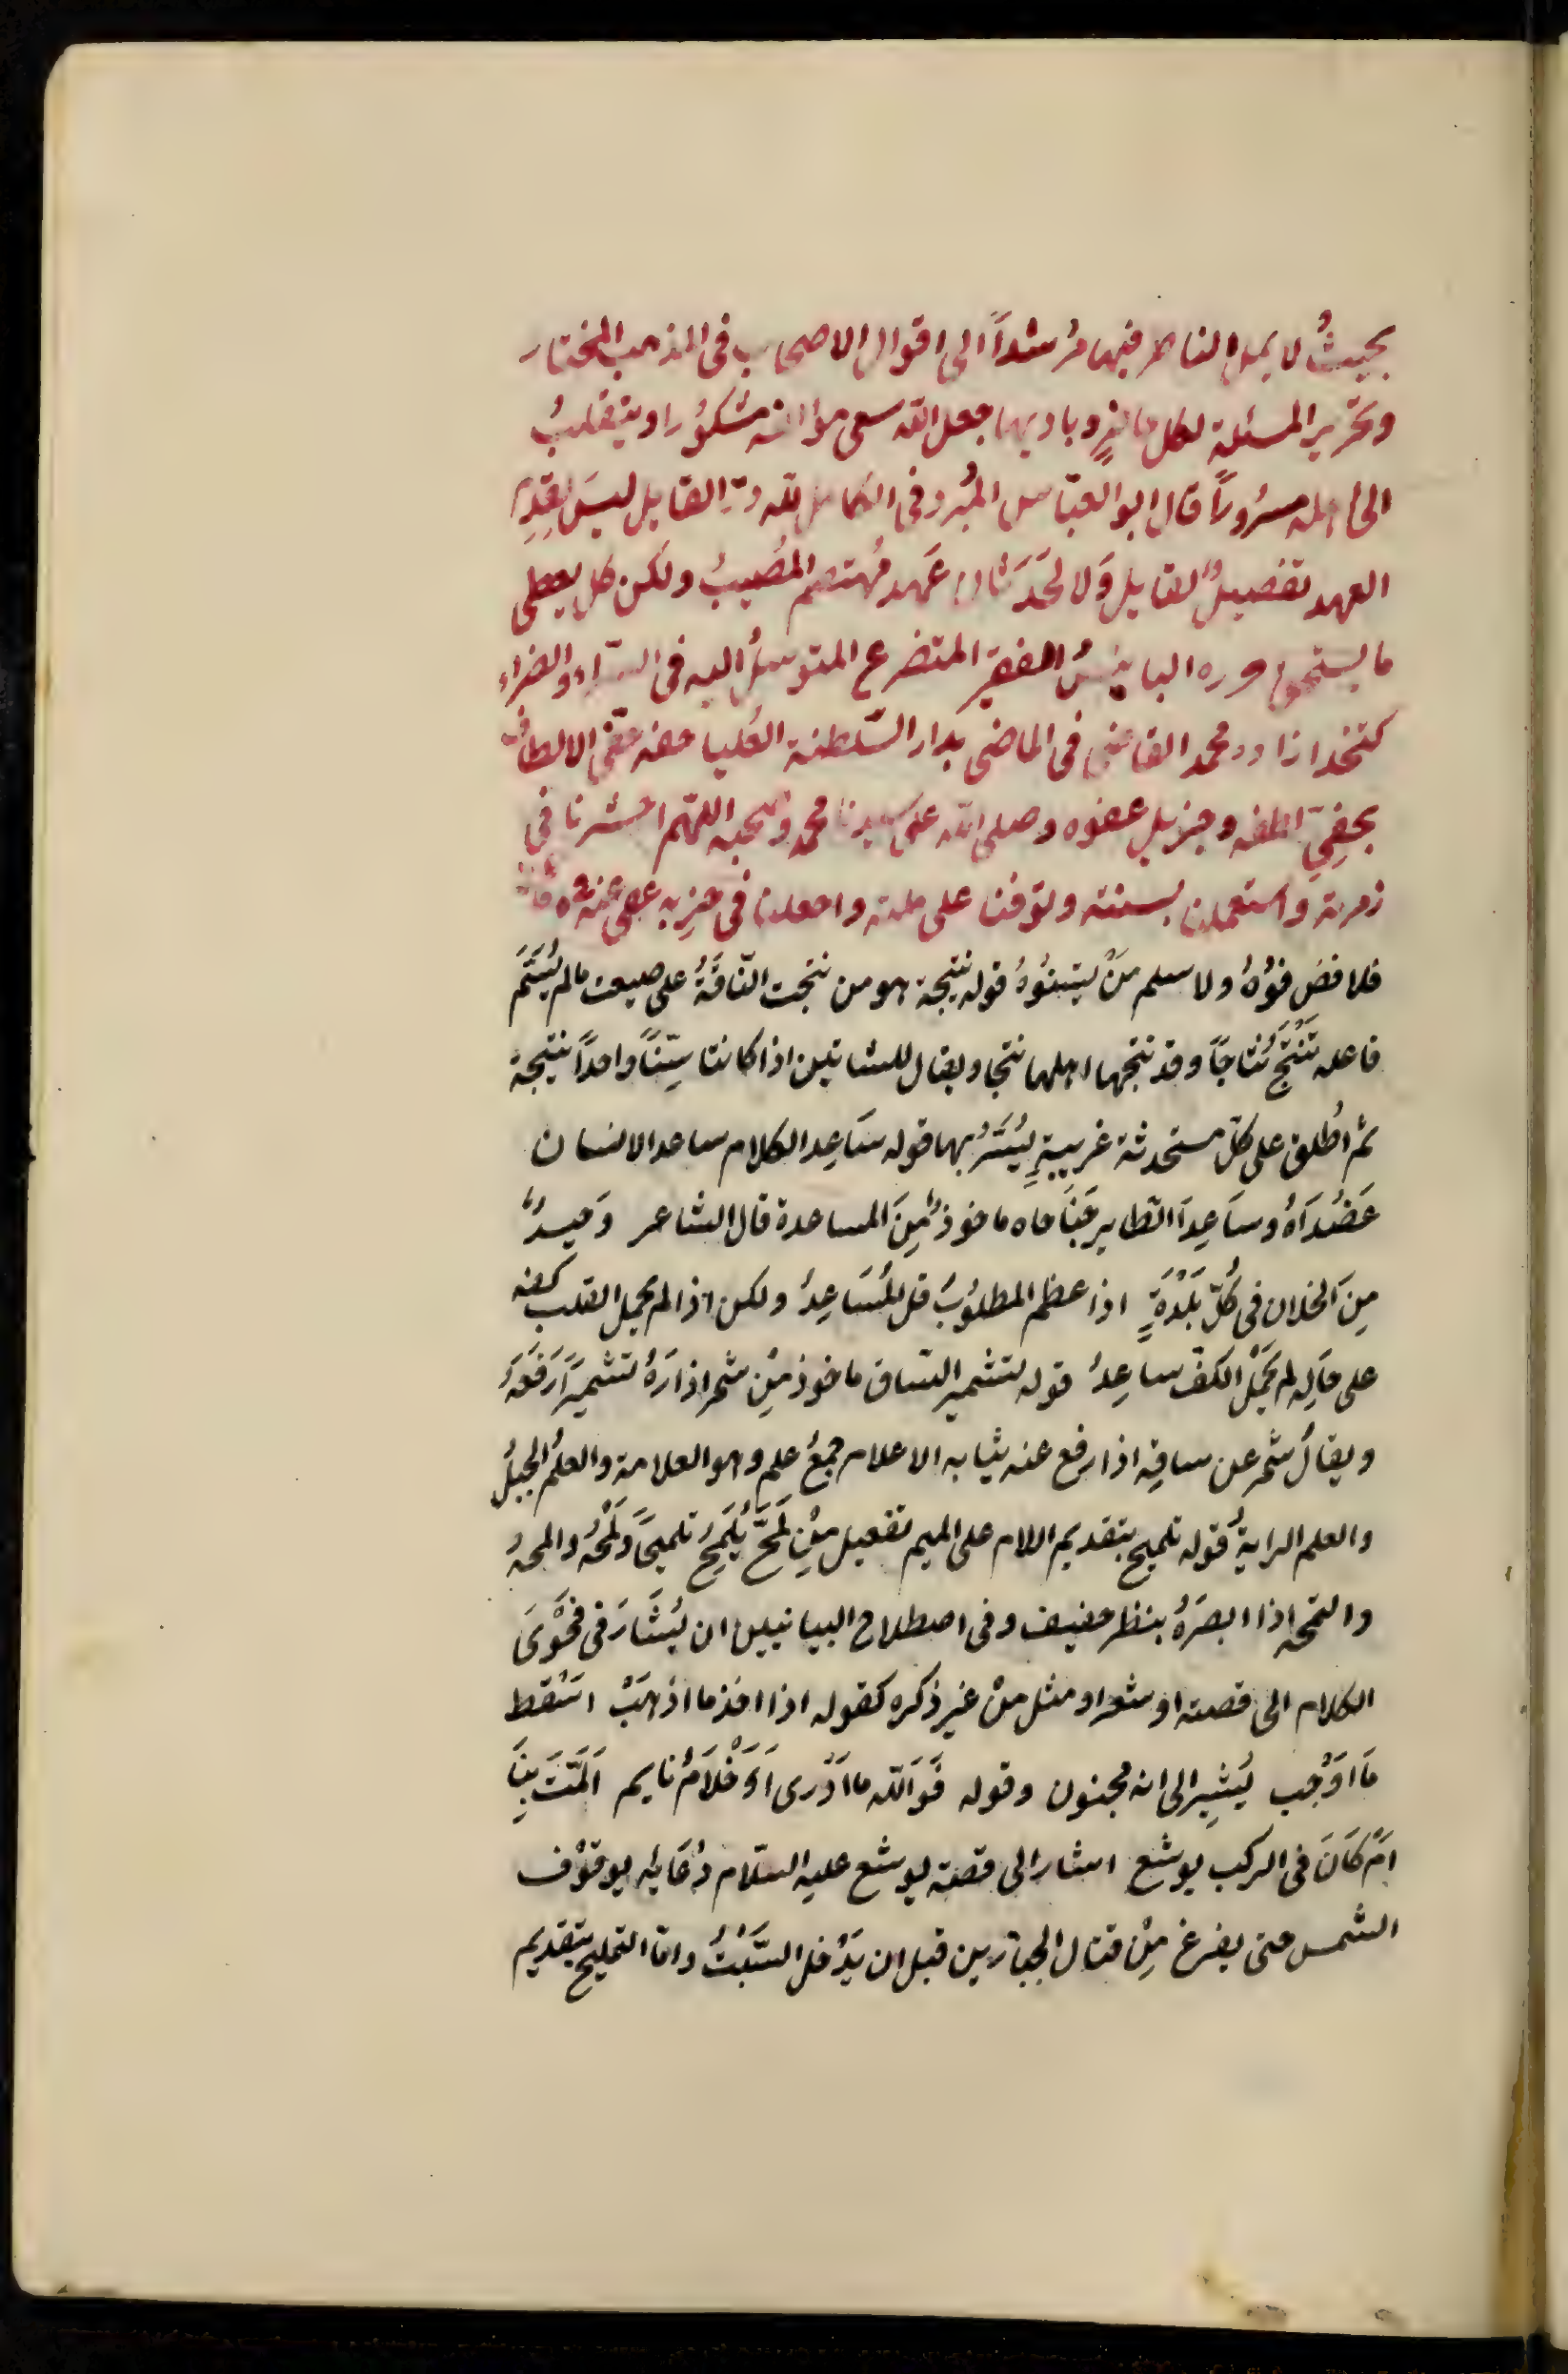 بحيثُ لا يمل الناظر فيها مُرشداً الى اقوال الاصحاب فى المذهب المختار
وتحرير المسئلة لكل وباديها جعل الله سعى مؤلفه مشكُورا وينقلبُ
الى اهله مسرُوراً قال ابو العبّاس المبُرد فى الكامل لله درّ القايل ليسَ لقِدِمِ
العهد تفضيلُ القايل وَلا لحَدَثان عَهد مُهتضم المُصيبُ ولكن كل يعطى
ما يستحق حرره البايئسُ الفقيرُ المتضرع المتوسلُ اليه فى السّراء والضراء
كتخدا زاده محمد القاضى فى الماضى بدار السّلطنة العُليا حفه خفى الالطاف
بخفِيّ لطفه وجزيل عفوه وصلى الله على سيدنا محمد وصحبه اللهّم احشرنا فى
زمرته واستعملنا بسنته وتوفنا على ملته واجعلنا فى حزبه
فلا فضَ فوُهُ ولا سلم مَنْ يشنوُهُ قوله نتيجة هو من نتجت النّاقَةُ على صيعت مالم يُسَمَّ
فاعله تُنْتَجُ نُتَاجًا وقد نتجها اهلها نتجا ويقال للشاتين اذا كانتا سِنّاً واحداً نتيجة
ثم اطُلق على كلّ مستحدثة غريبةٍ يُسَرُّ بها قوله سَاعِد الكلام ساعد الانسان
عَضُدَاهُ وسَاعِدَا الطاير جَنَاحاه ماخوذٌ مِنَ المساعدة قال الشاعر وَحيدٌ
مِنَ الخلان فى كُلّ بَلْدَةٍ اذا عظم المطلوُبُ قل المُسَاعِدُ ولكن اذا لم يحمل القلب كفه
على حَالِه لم يَحْمِل الكفّ ساعِدُ قوله لتشمير السّاق ماخوذ مِنْ شمر اذارَهُ تشميرَاً رَفَعَهُ
ويقالُ شمر عن ساقِه اذا رفع عنه ثيابه الاعلام جمعُ علم وهو العلامة والعلمُ الجبلُ
والعلم الرايةُ قوله تلميح بتقديم اللام على الميم تفعيل مِنْ لَمّحَ يُلَمِّحُ تلميحًا وَلمَحَهُ والمحهُ
والتمّحه اذا ابصَرَهُ بنظر خفيف وفى اصطلاح البيانيين ان يُشَارَ فى فَحْوَى
الكلام الى قصة او شعر او مثل مِنْ غير ذكره كقوله اذا اخذ ما اذْهَبْ اسْقط
مَا اوْجب يُشِير الى انه مجنون وقوله فَوَالله ما ادْرى اَاَحْلاَمُ نايم اَلَمّتَ بِنَا
اَمْ كَانَ فى الركب يوشع اشار الى قصة يوشع عليه السّلام دُعَائِه بوقوْف
الشمس حتى يفرغ مِنْ قتال الجبّارين قبل ان يَدْخل السّبْتُ واما التمليح بتقديم